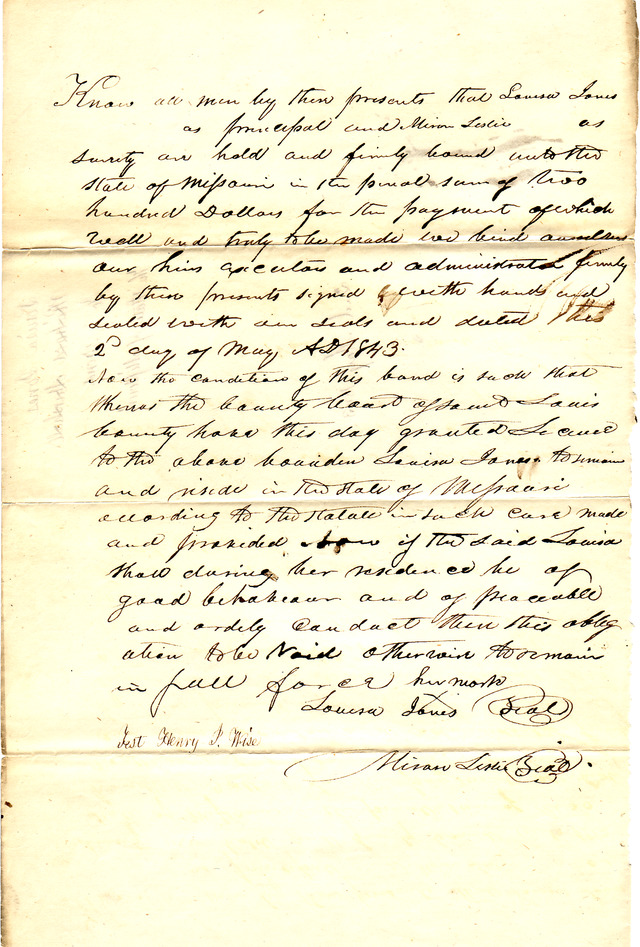 Know all men by these presents that Louisa Jones
as principal and Miron Leslie as
surety are held and firmly bound unto the
State of Missouri in the penal sum of two
hundred Dollars for the payment of which
well and truly to be made we bind ourselves
our heirs executors and administrators firmly
by these presents signed with hands and
sealed with our seals and dated this
2d day of May AD 1843.
Now the condition of this bond is such that
whereas the county court of Saint Louis
County have this day granted License
to the above bounden Louisa Jones to remain
and reside in the State of Missouri
according to the statute in such case made
and provided Now if the said Louisa
shall during her residence be of
good behaveour and of peaceable
and ordely conduct then this oblig
ation to be Void otherwise to remain
in full force her mark
Louisa Jones Seal
Test Henry P. Wise
Miron Leslie Seal